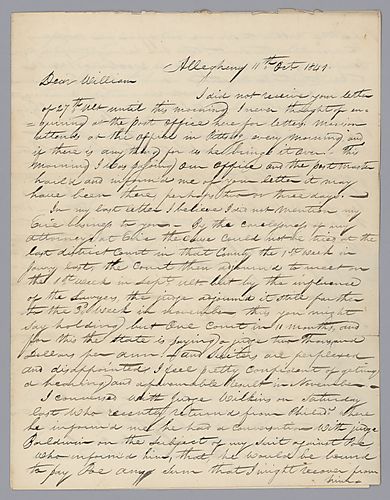 Allegheny 11th Oct. 1841.
Dear William
I did not receive your letter
of 27th Ult until this morning, I never thought of en-
=quiring at the post office here for letters
attends at the office in every morning and
if there is any thing for us he brings it over. This
morning I was passing our office and the post master
and informed me of your letter it may
have been there perhaps two or three days.
In my last letter I believe I did not mention my
Erie to you. By the of my
attorneys at Erie the Cause could not be tried at the
last district Court in that County the 1st Week in
last, the Court then adjourned to meet on
the 1st Week in Sept ult but by the influence
of the Lawyers, the judge adjourned it still further
to the 3d Week in november this you might
Say holding but One Court in 11 months, and
for this the State is paying a judge two thousand
Dollars per ann and Suitors are perplexed
and disappointed I feel pretty Confident of getting
a hearing and a favourable Result in November
I Conversed with Judge Wilkins on Saturday
last Who recently returned from Philad. where
he informed me he had a Conversation With Judge
Baldwin on the Subject of my Suit against
Who informed him, that he would be bound
to pay any Sum that I might recover from
him.